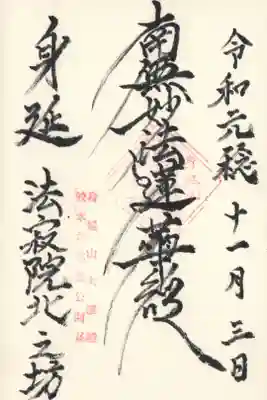 令和元穐 十一月 三日
南無妙法蓮華経
身延 法寂院北之坊